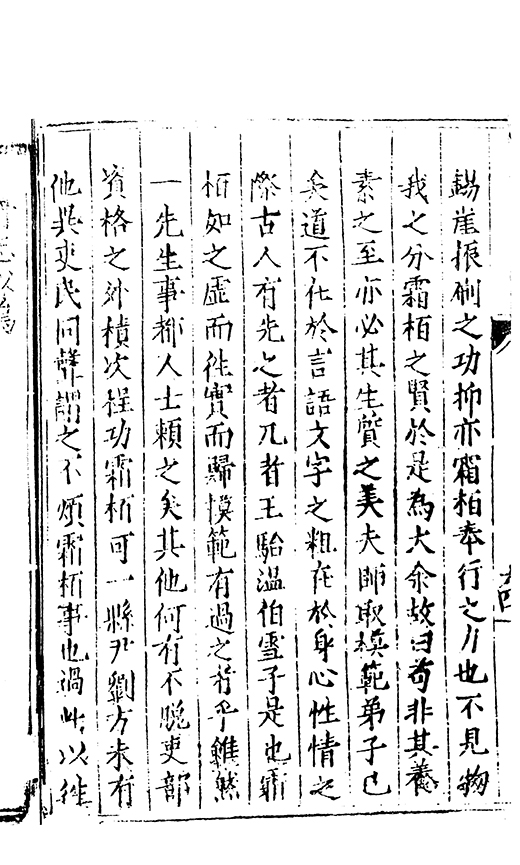 錫崖振刷之功抑亦霜栢奉行之力也不見物
我之分霜栢之賢於是為大余故曰苟非其養
素之至亦必其生質之美夫師取模範弟子已
矣道不在於言語文字之粗在於身心性情之
際古人有先之者兀者王駘溫伯雪子是也霜
栢如之虛而徃實而歸模範有過之者乎雖然
一先生事都人士賴之矣其他何有不聴吏部
資格之外積次程功霜栢可一縣尹劉方未有
他異吏民同聲謂之不煩霜栢事也過此以徃